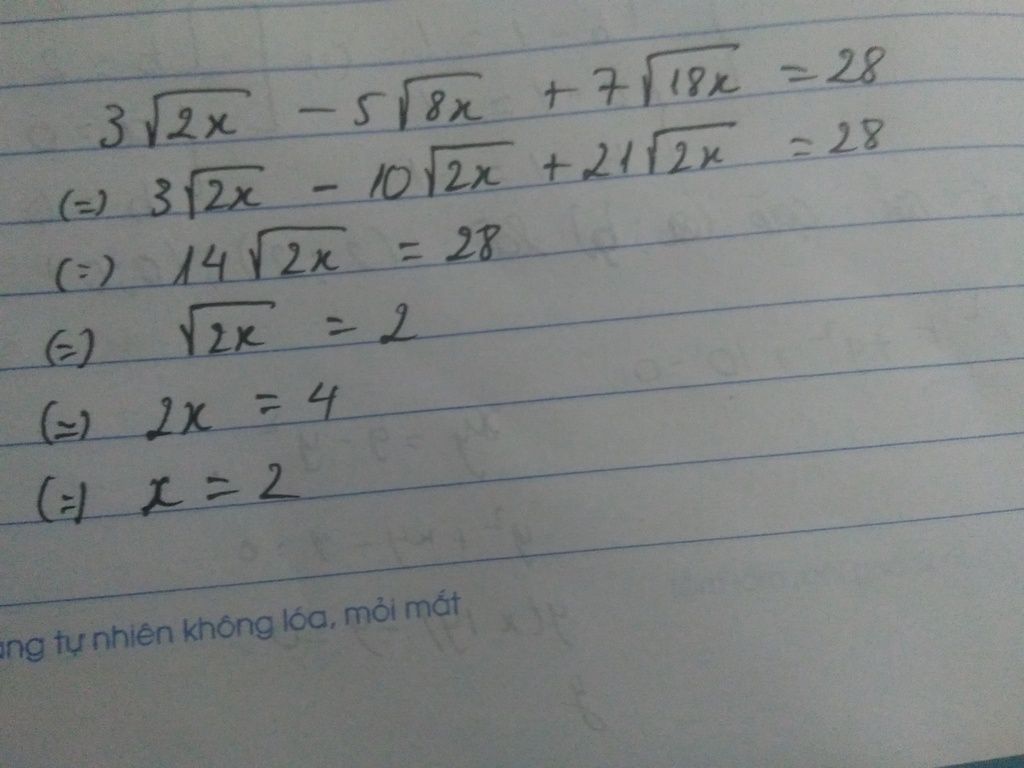 3√2x - 5√8x + 7√18x = 28
(=) 3√2x - 10√2x + 21√2x = 28
(=) 14√2x = 28
(=) √2x = 2
(=) 2x = 4
(=) x = 2
tự nhiên không lóa, mỏi mắt